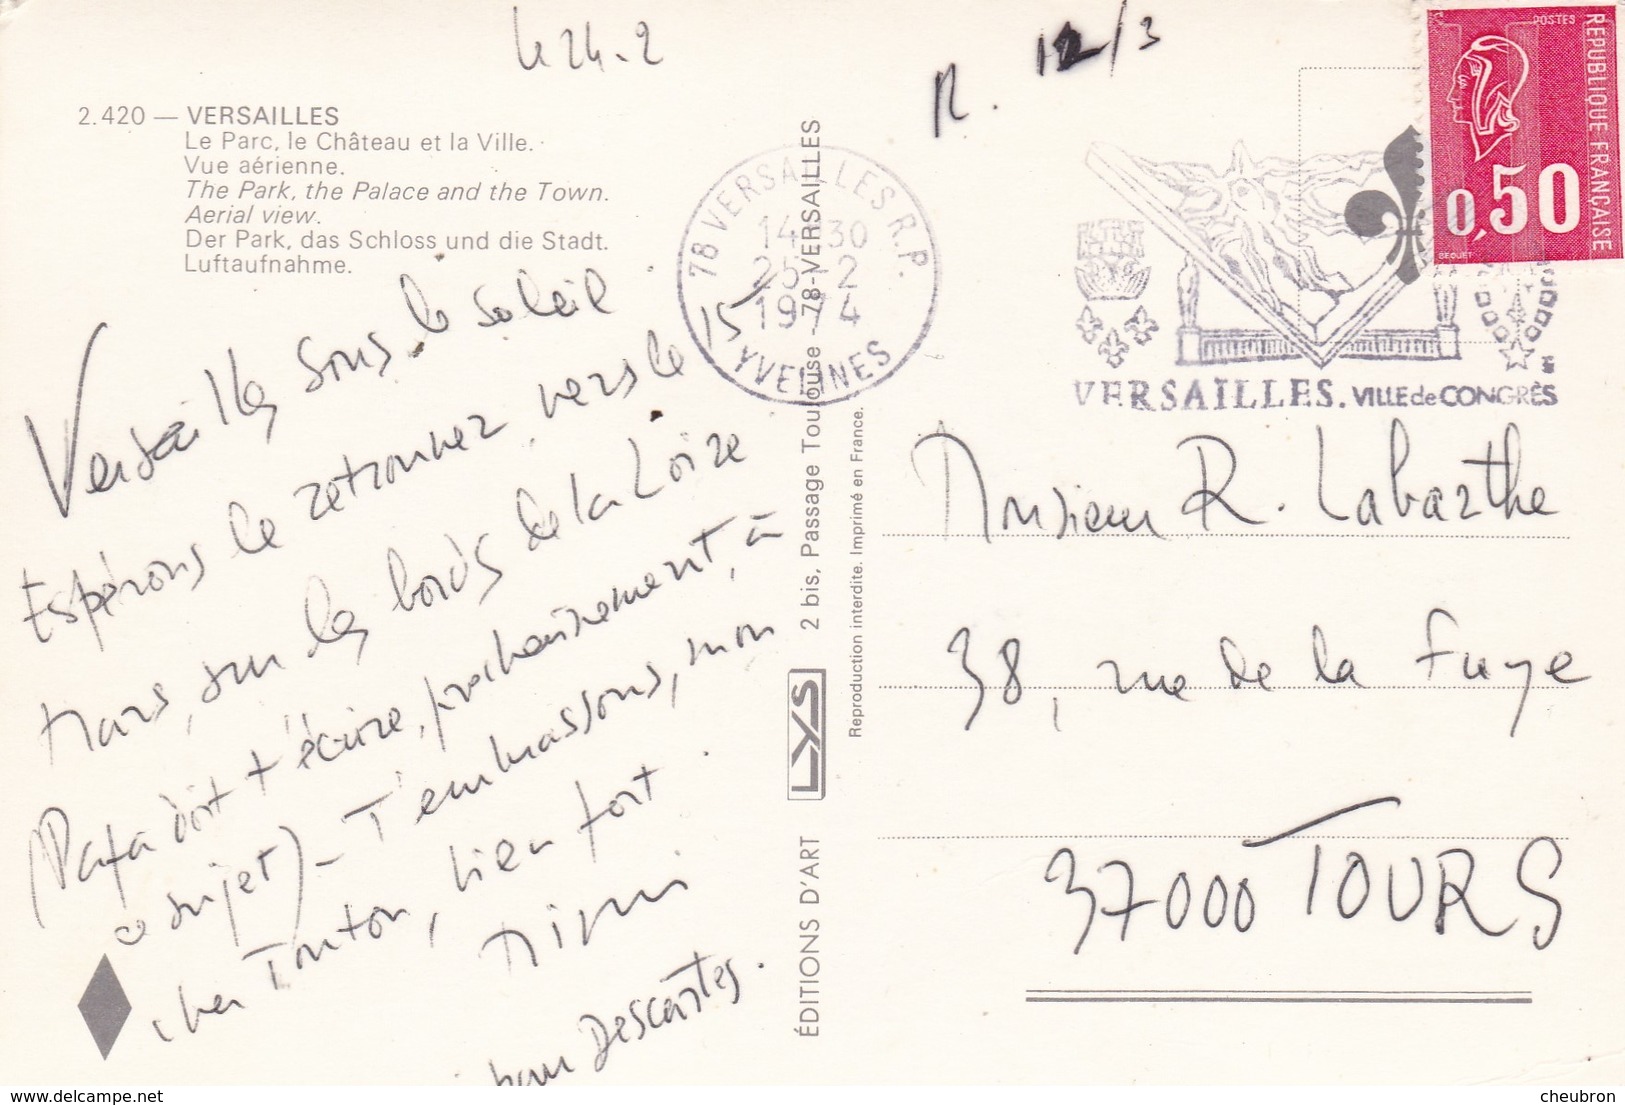 le 24.2
R. 12/3
2.420 — VERSAILLES
Le Parc, le Château et la Ville.
Vue aérienne.
The Park, the Palace and the Town.
Aerial view.
Der Park, das Schloss und die Stadt.
Luftaufnahme.
Versailles sous le soleil
Espérons le retrouver vers le 15
Mars, sur les bords de la Loire
(Papa doit t'écrire, prochainement, à
ce sujet) - T'embrassons, mon
cher Tonton, bien fort.
Mimi
pour Descartes.
78 VERSAILLES R.P.
14 30
25-2
1974
YVELINES
VERSAILLES. VILLE de CONGRÈS
POSTES
REPUBLIQUE FRANÇAISE
0,50
BEQUET
ÉDITIONS D'ART LYS 2 bis, Passage Toulouse - 78-VERSAILLES
Reproduction interdite. Imprimé en France.
Monsieur R. Labarthe
38, rue de la Fuye
37000 TOURS
www.delcampe.net
cheubron